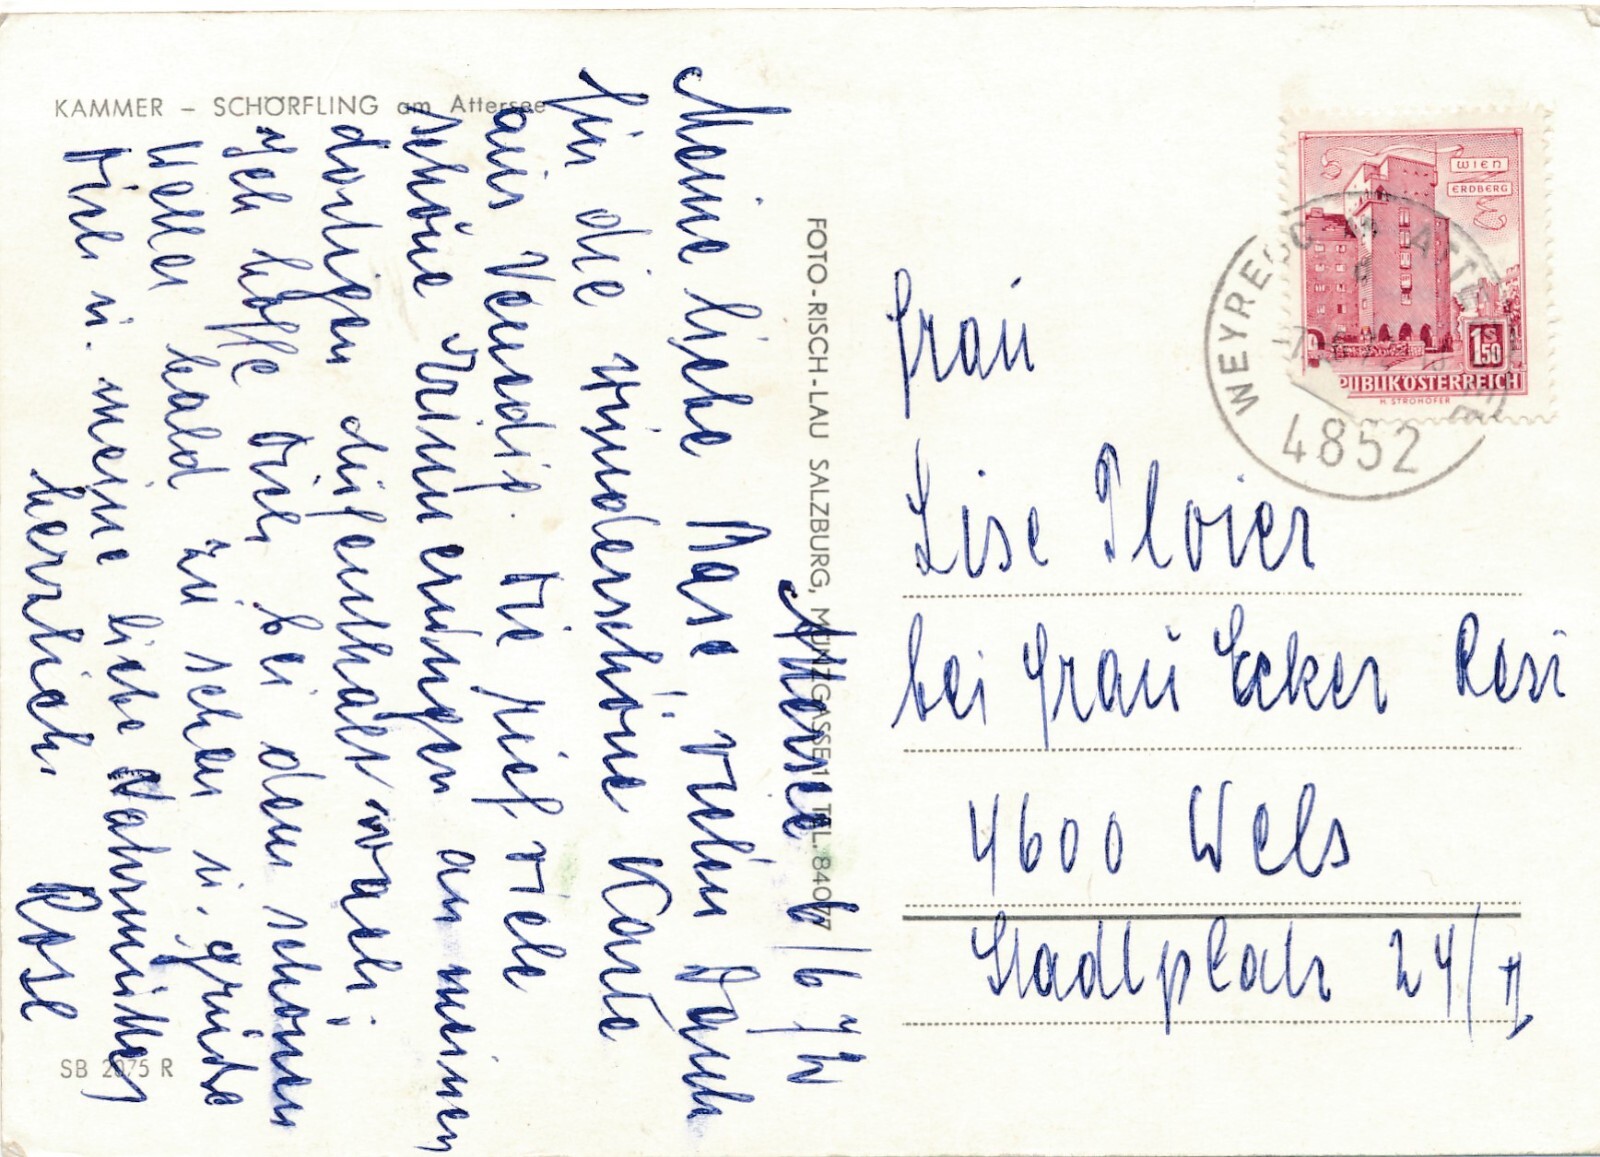 KAMMER – SCHÖRFLING am Attersee
Attersee 6/6 72
Meine liebe Mase, vielen Dank
für die wunderschöne Karte
aus Venedig. Die rief viele
schöne Erinnerungen an meinen
dortigen Aufenthalt wach.
Ich hoffe Dich bei dem schönen
Wetter bald zu sehen u. grüße
Dich u. meine liebe
herzlich. Rose
SB 2075 R
FOTO-RISCH-LAU SALZBURG, MÜNZGASSE 1 TEL. 84077
WIEN
ERDBERG
1.50
S
PUBLIK ÖSTERREICH
H. STROHOFER
WEYREGG AM ATTERSEE
4852
Frau
Lise Ploier
bei Frau Ecker Resi
4600 Wels
Stadtplatz 24/II